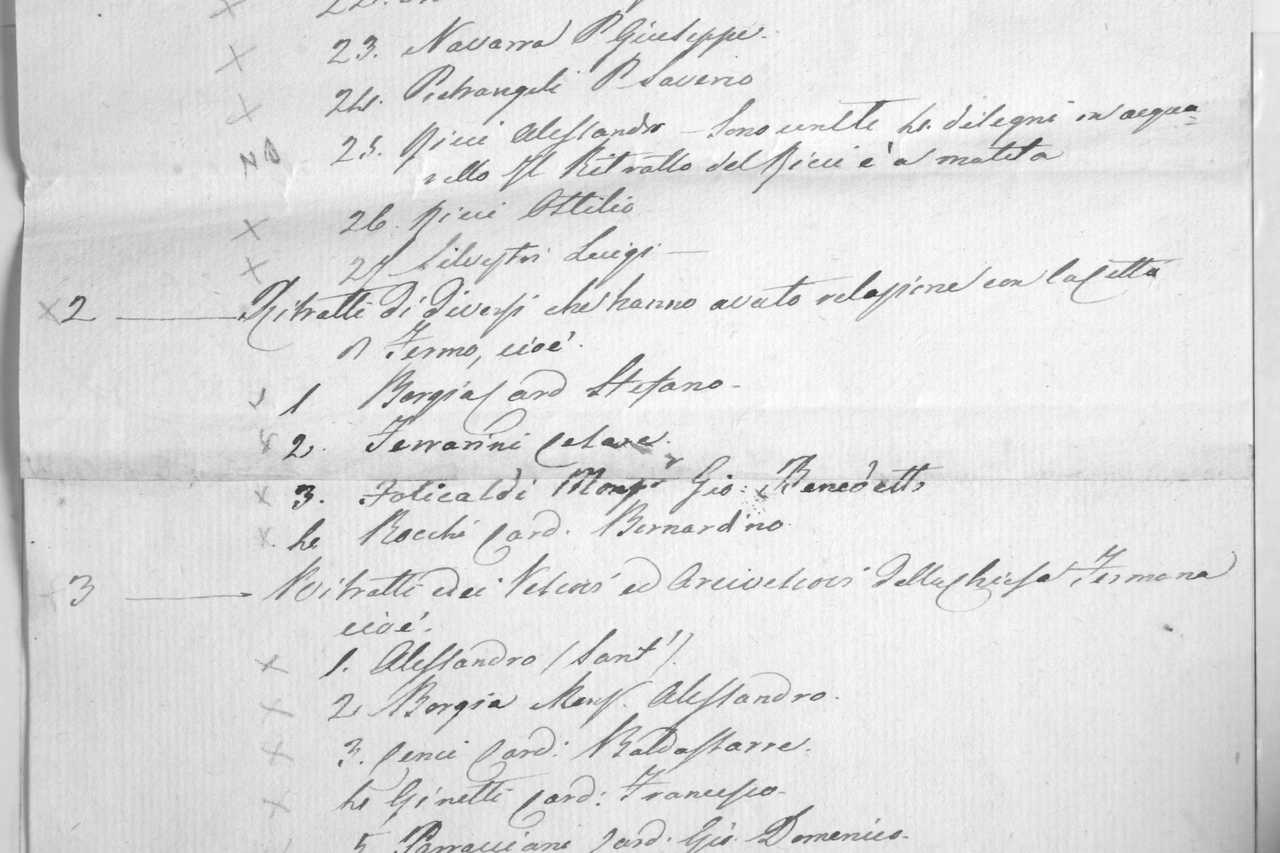 23. Navarra P. Giuseppe.
24. Pietrangeli P. Saverio
NB 25. Ricci Alessandro – Sono uniti 4. disegni in acqua
rello Il Ritratto del Ricci è a matita
26. Ricci Ottilio
27 Silvestri Luigi —
2 — Ritratti di diversi che hanno avuto relazione con la Città
di Fermo, cioè.
1 Borgia Card Stefano –
2. Ferrarini Cesare.
3. Folicaldi Monsr Gio: Benedetto
4 Rocchi Card. Bernardino
3 — Ritratti dei Vescovi ed Arcivescovi della Chiesa Fermana
cioè.
1. Alessandro (Sant')
2 Borgia Mons. Alessandro.
3. Cenci Card: Baldassarre.
4 Ginetti Card: Francesco.
5. Parracciani Card. Gio. Domenico.